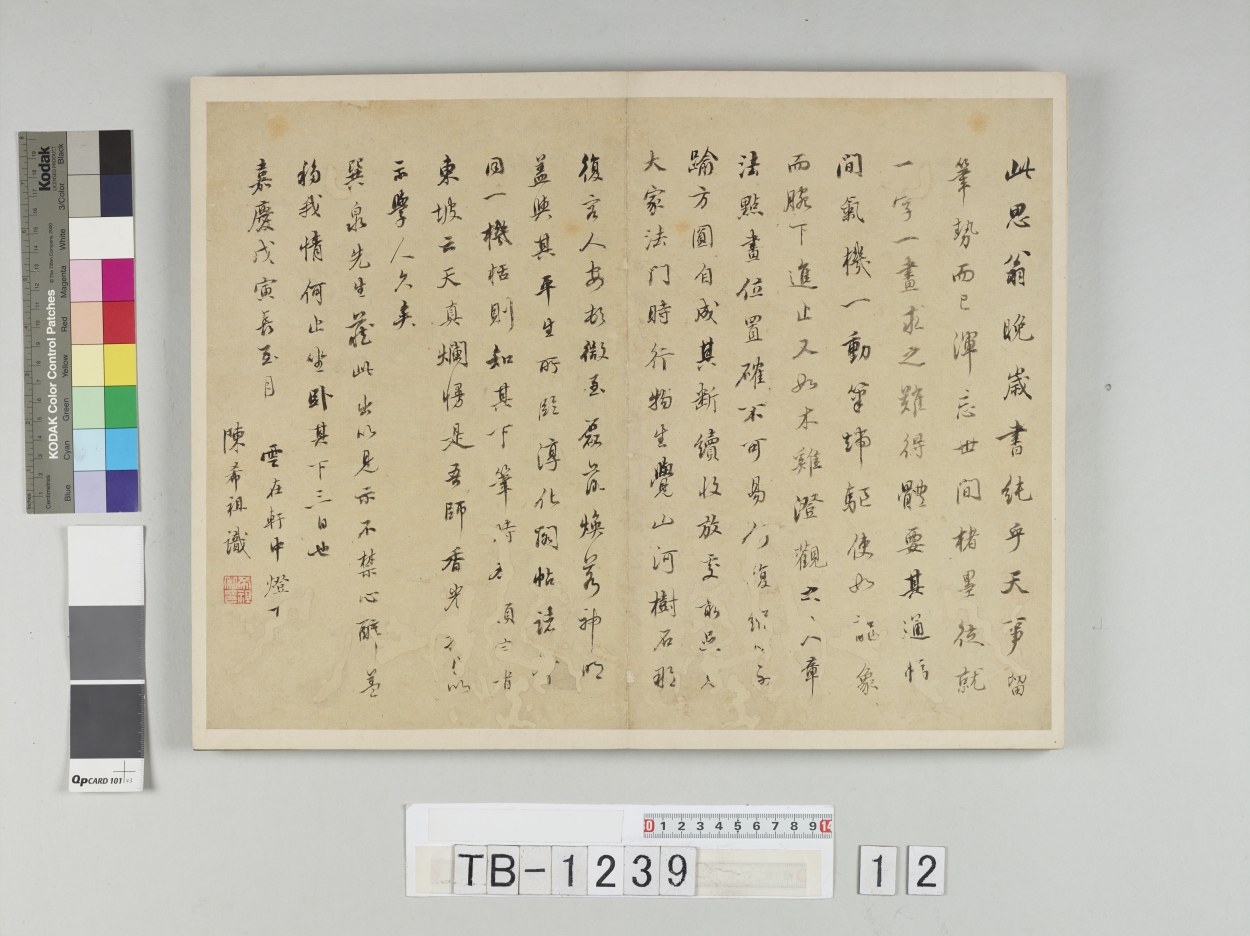 此思翁晚歲書純乎天事留
筆勢而已渾忘世間楮墨從就
一字一畫求之難得體要其通幅
間氣機一動筆端驅使如龍象
而腕下進止又如木雞澄觀其八章
法點畫位置確不可易
踰方圓自成其斷續收放
大家法門時行物生覺山河樹石那
復言人安
蓋與其平生所臨淳化閣帖諸
同一機括則知其下筆時
東坡云天真爛慢是吾師香光
示學人久矣
巽泉先生藏此出以見示不禁心醉蓋
移我情何止坐卧其下三日也
嘉慶戊寅長至月
雲在軒中燈下
陳希祖識
Kodak
KODAK Color Control Patches
Blue
Cyan
Green
Yellow
Red
Magenta
White
3/Color
Black
Centimetres
QpCARD 101 v3
0 1 2 3 4 5 6 7 8 9
TB-1239
12